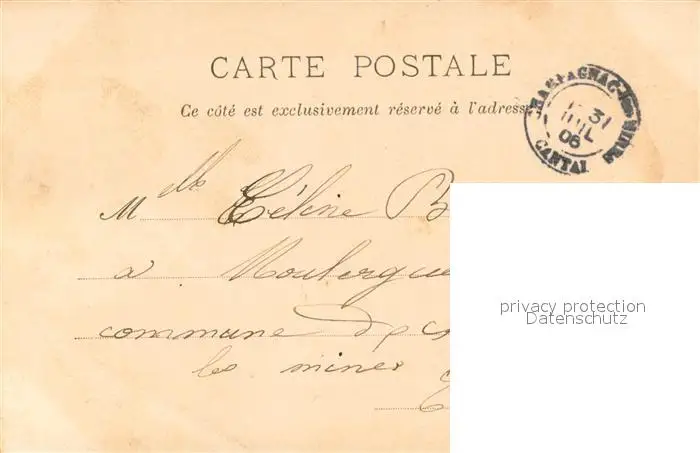 CARTE POSTALE
Ce côté est exclusivement réservé à l'adresse
31
JUIL
06
CANTAL
Mlle Céline B
à
commune de
les mines
privacy protection
Datenschutz